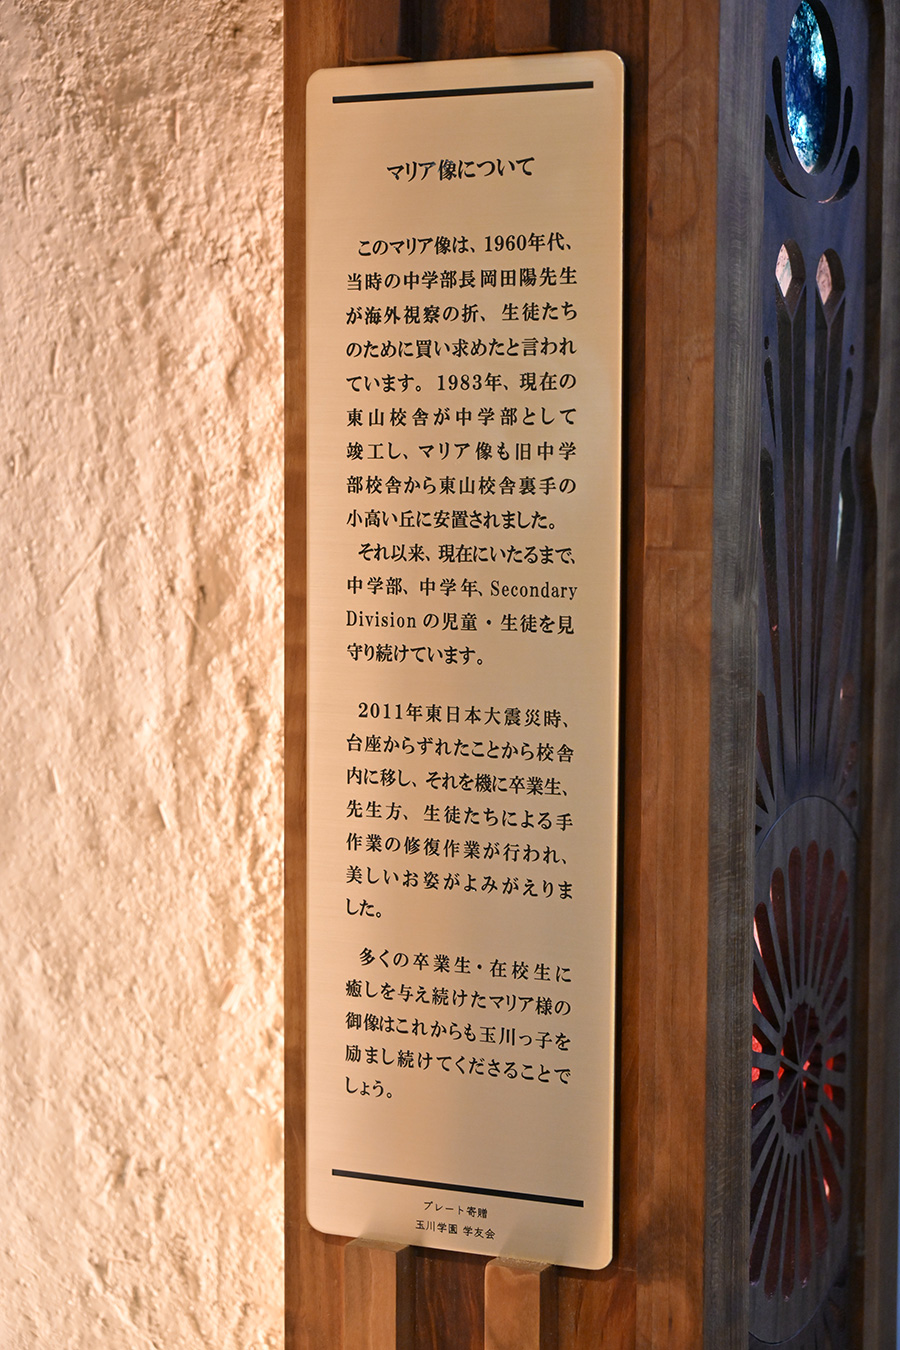 マリア像について
このマリア像は、1960年代、
当時の中学部長岡田陽先生
が海外視察の折、生徒たち
のために買い求めたと言われ
ています。1983年、現在の
東山校舎が中学部として
竣工し、マリア像も旧中学
部校舎から東山校舎裏手の
小高い丘に安置されました。
それ以来、現在にいたるまで、
中学部、中学年、Secondary
Divisionの児童・生徒を見
守り続けています。
2011年東日本大震災時、
台座からずれたことから校舎
内に移し、それを機に卒業生、
先生方、生徒たちによる手
作業の修復作業が行われ、
美しいお姿がよみがえりま
した。
多くの卒業生・在校生に
癒しを与え続けたマリア様の
御像はこれからも玉川っ子を
励まし続けてくださることで
しょう。
プレート寄贈
玉川学園 学友会